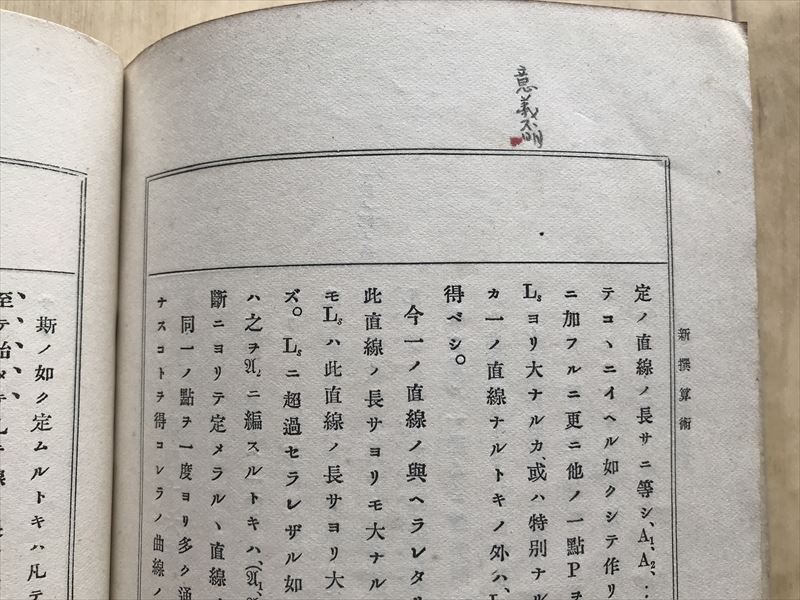 意義不明
新撰算術
定ノ直線ノ長サニ等シ、A₁, A₂, ‥
テコヽニイヘル如クシテ作リ
ニ加フルニ更ニ他ノ一點Pヲ
Lₛヨリ大ナルカ、或ハ特別ナル
カ一ノ直線ナルトキノ外ハ、
得ベシ。
今一ノ直線ノ與ヘラレタ
此直線ノ長サヨリモ大ナル
モLₛハ此直線ノ長サヨリ大
ズ。Lₛニ超過セラレザル如
ハ之ヲ𝔄₂ニ編スルトキハ、(𝔄₁,
斷ニヨリテ定メラルヽ直線
同一ノ點ヲ一度ヨリ多ク通
ナスコトヲ得コレラノ曲線ノ
斯ノ如ク定ムルトキハ凡テ
至テ始メテ